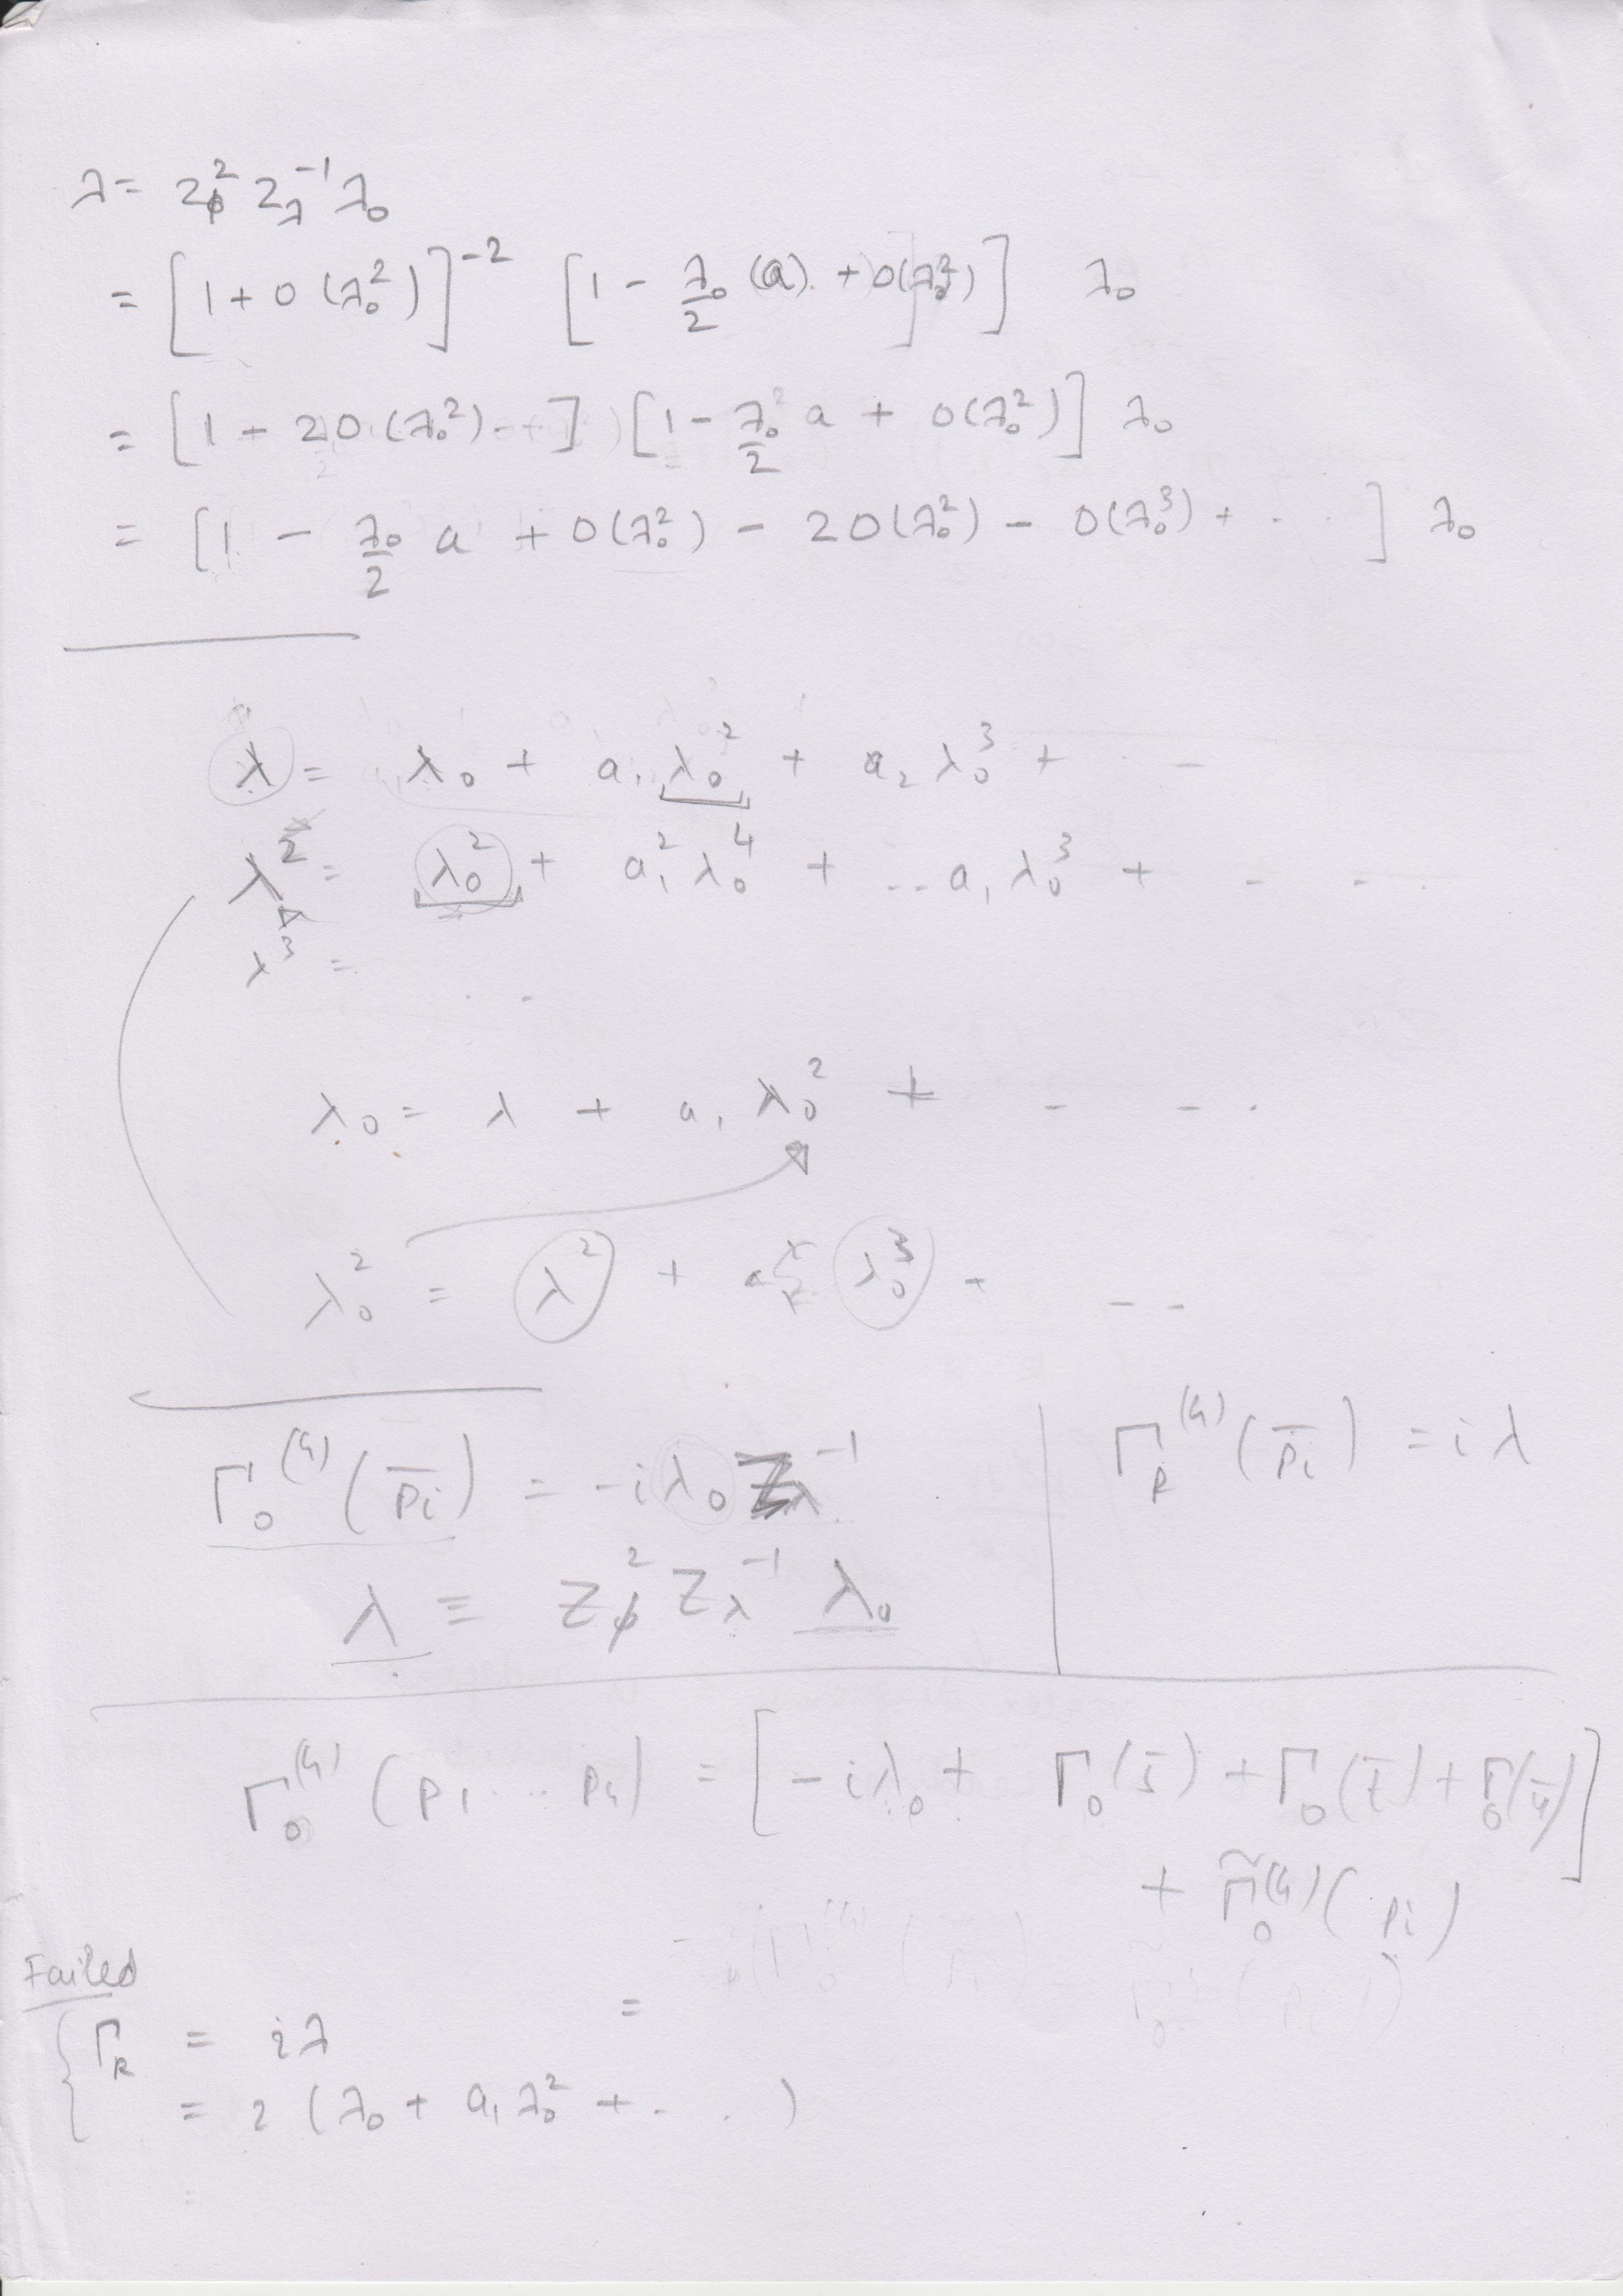 λ = Z_φ^2 Z_λ^{-1} λ_0
= [1 + O(λ_0^2)]^{-2} [1 - λ_0/2 (a) + O(λ_0^2)] λ_0
= [1 - 2O(λ_0^2) - - ] [1 - λ_0/2 a + O(λ_0^2)] λ_0
= [1 - λ_0/2 a + O(λ_0^2) - 2O(λ_0^2) - O(λ_0^3) + - - ] λ_0
λ = λ_0 + a_1 λ_0^2 + a_2 λ_0^3 + - -
λ^2 = λ_0^2 + a_1^2 λ_0^4 + -- a_1 λ_0^3 + - - -
λ^3 = - -
λ_0 = λ + a_1 λ_0^2 + - - -
λ_0^2 = λ^2 + λ_0^3 - - -
Γ_0^{(4)} (p̄_i) = -iλ_0 Z_λ^{-1}
Γ_R^{(4)} (p̄_i) = iλ
λ ≡ Z_φ^2 Z_λ^{-1} λ_0
Γ_0^{(4)} (p_1 ... p_4) = [-iλ_0 + Γ_0(s̄) + Γ_0(t̄) + Γ_0(ū)]
+ Γ̃_0^{(4)} (p_i)
Failed
=
Γ_R = iλ
= i (λ_0 + a_1 λ_0^2 + - . )